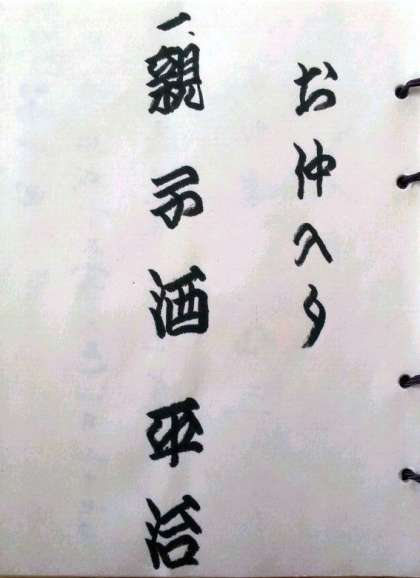 お仲入り
一、親子酒 平治